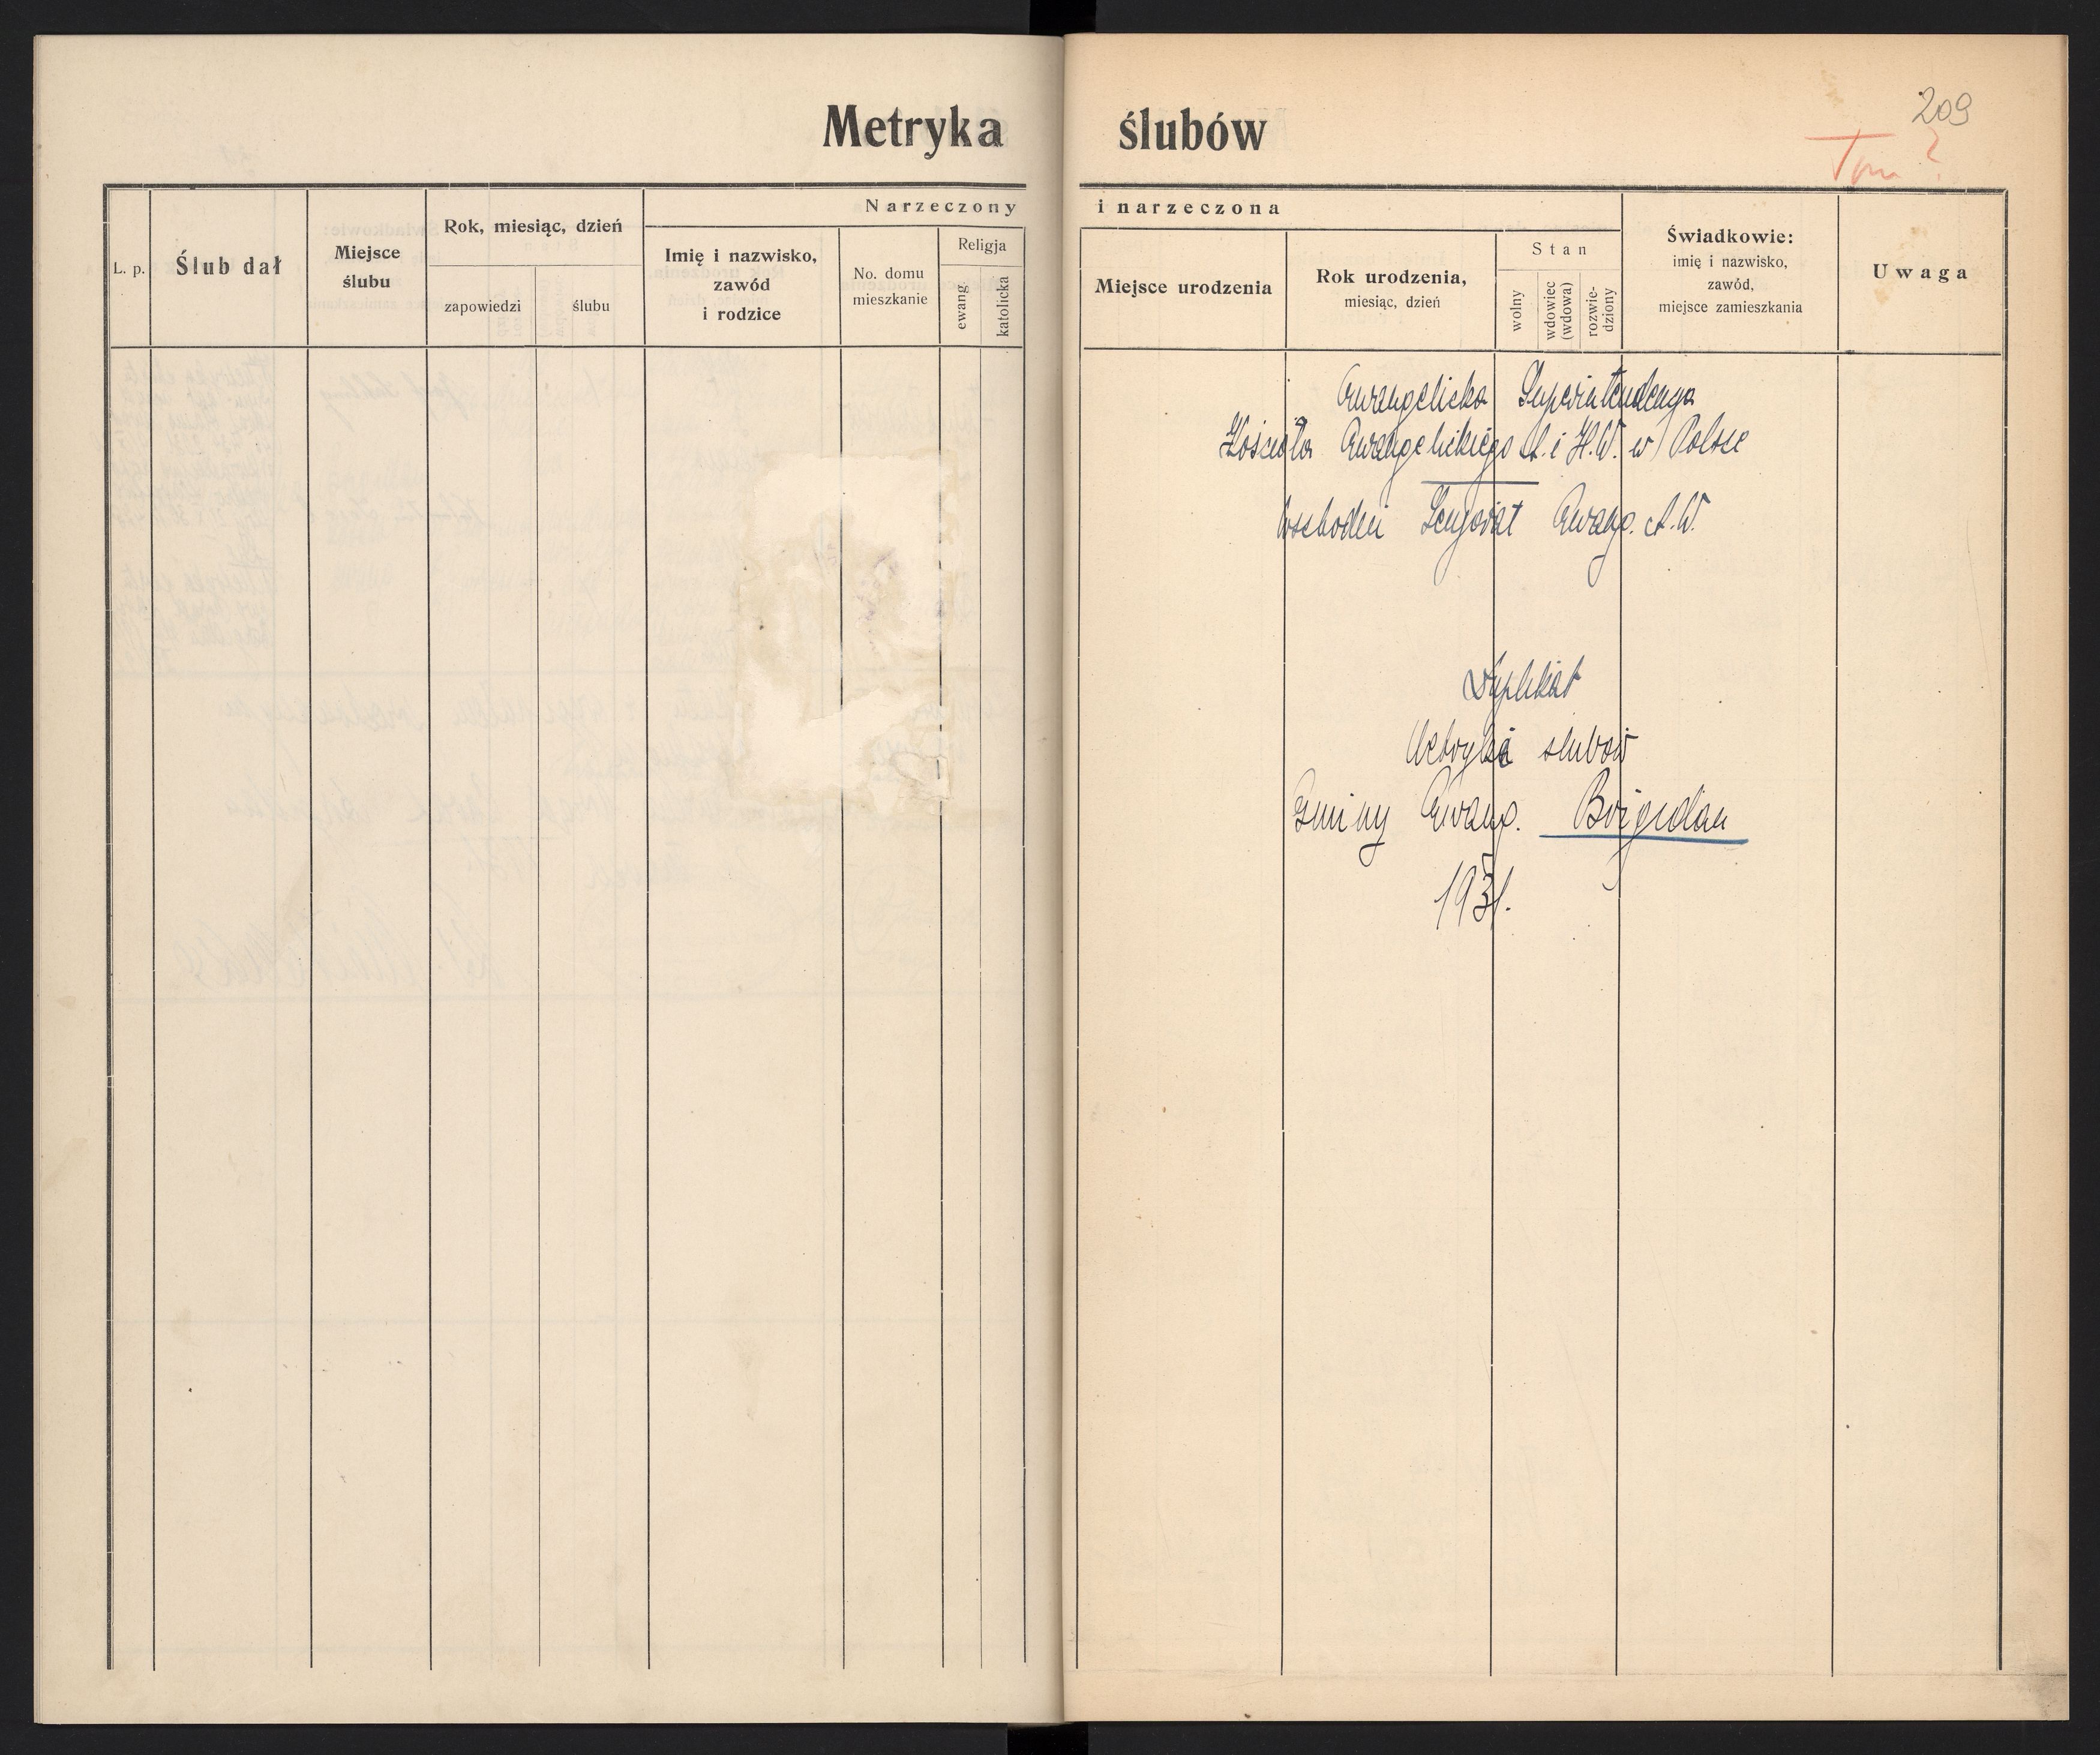 Metryka ślubów
209
Tom ?
L. p.
Ślub dał
Miejsce
ślubu
Rok, miesiąc, dzień
zapowiedzi
ślubu
Narzeczony i narzeczona
Imię i nazwisko,
zawód
i rodzice
No. domu
mieszkanie
Religja
ewang.
katolicka
Miejsce urodzenia
Rok urodzenia,
miesiąc, dzień
Stan
wolny
wdowiec
(wdowa)
rozwie-
dziony
Świadkowie:
imię i nazwisko,
zawód,
miejsce zamieszkania
Uwaga
Ewangelicka Superintendenga
Kościoła Ewangelickiego A. i H.W. w Polsce
Wschodni Senjorat Ewang. A.W.
Duplikat
Metryki slubów
Gminy Ewang. Brigidau
1931.